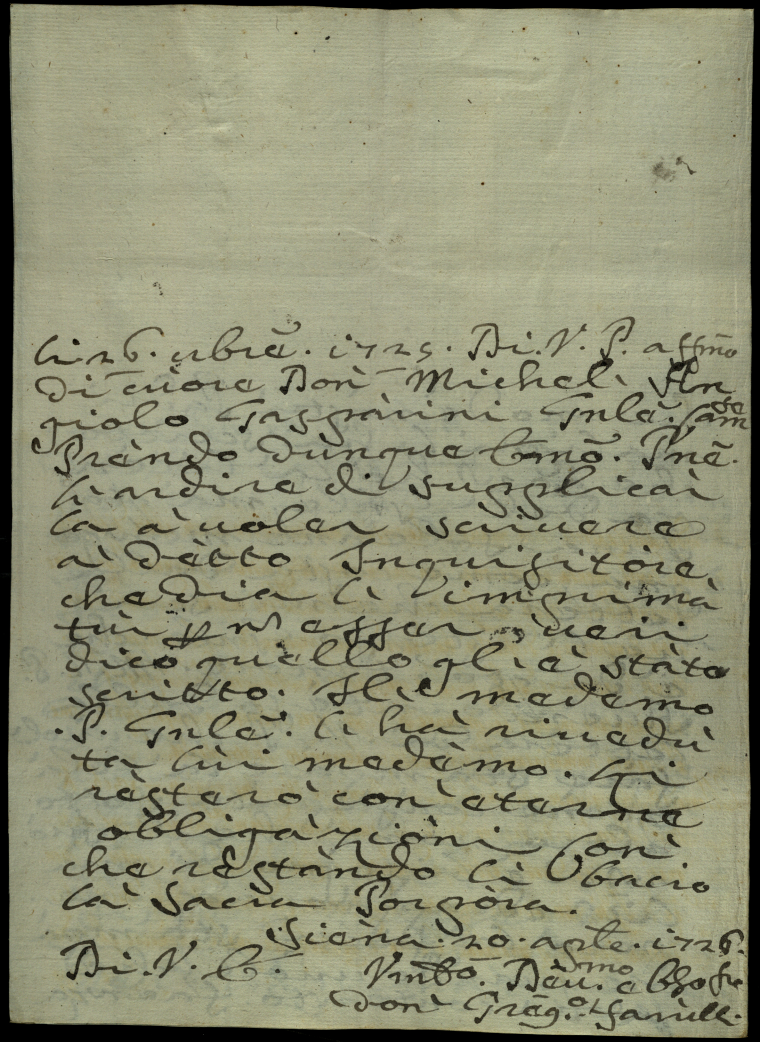 li 26. 9bre. 1725. Di. V. P. affmo
di cuore Don Michel An
giolo Gasparini Gnle. Cam
Prendo dunque Emo. Pne.
l'ardire di supplicar
la à voler scrivere
à detto Inquisitore
che dia l'imprima
tur p esser veri
dico quello gli è stato
scritto. Il medemo
P. Gnle. li hà rivedu
ta lui medemo. Gli
resterò con eterne
obbligazioni con
che restando li bacio
la Sacra Porpora.
Siena. 20. agte. 1726.
Di. V. E. Devmo e
Don Greg.o